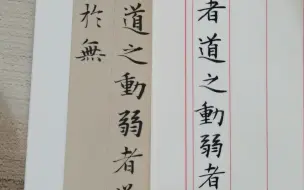 者道之動弱者
道之動弱者道
於無